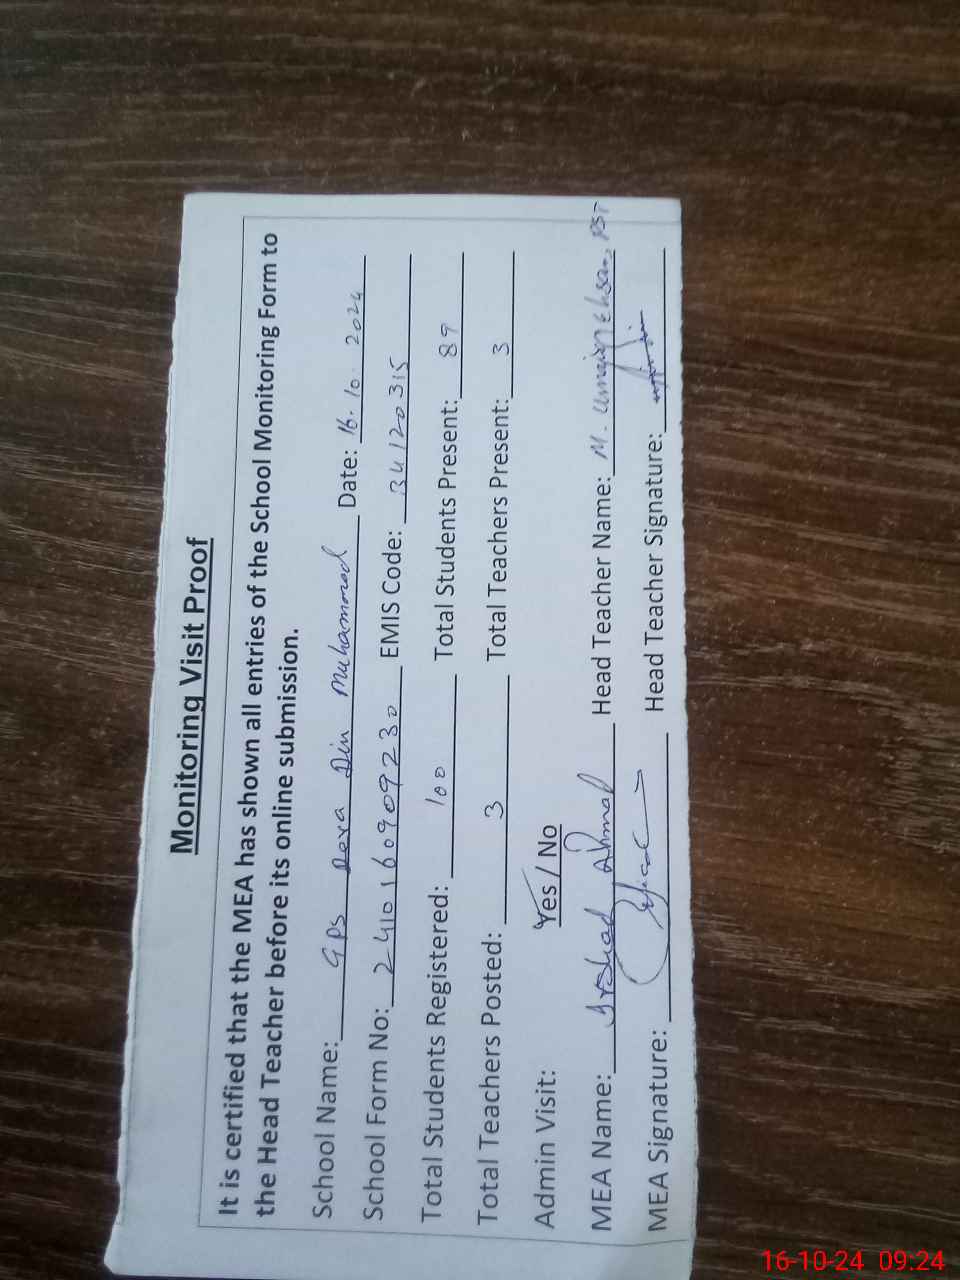 Monitoring Visit Proof
It is certified that the MEA has shown all entries of the School Monitoring Form to
the Head Teacher before its online submission.
School Name: GPS Dera Din Muhammad Date: 16.10.2024
School Form No: 2410160909230 EMIS Code: 34120315
Total Students Registered: 100 Total Students Present: 89
Total Teachers Posted: 3 Total Teachers Present: 3
Admin Visit: Yes / No
MEA Name: Irshad Ahmad Head Teacher Name: M. Umair Ehsan, PST
MEA Signature: Head Teacher Signature:
16-10-24 09:24